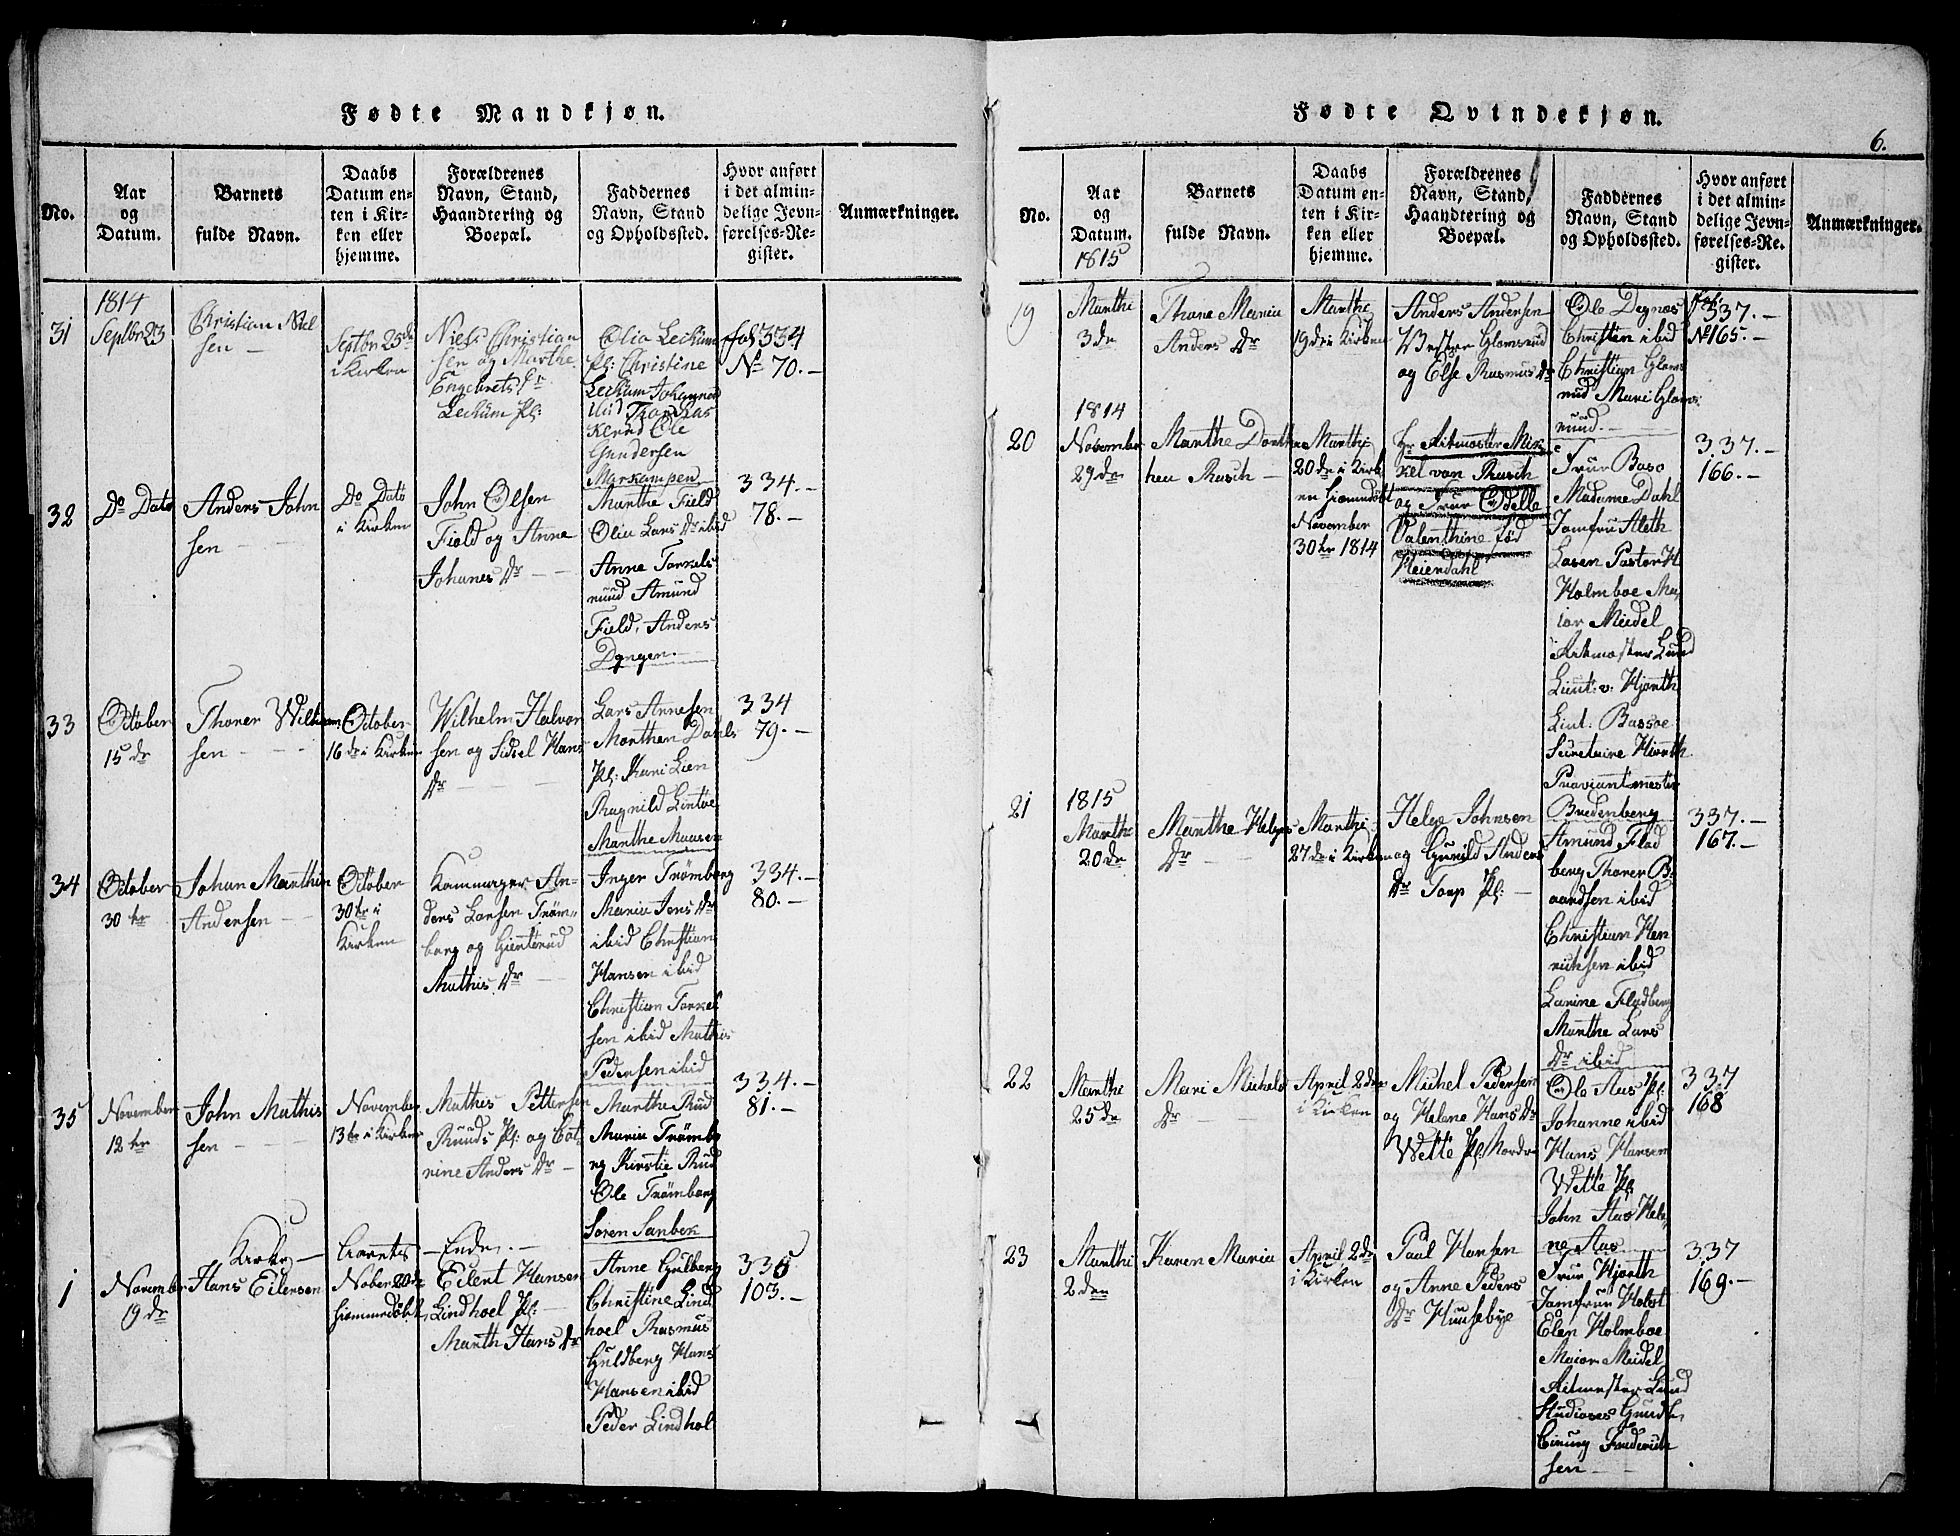 Fødte Mandkjøn.
No.
Aar
og
Datum.
Barnets
fulde Navn.
Daabs
Datum en-
ten i Kir-
ken eller
hjemme.
Forældrenes
Navn, Stand,
Haandtering og
Boepæl.
Faddernes
Navn, Stand
og Opholdssted.
Hvor anført
i det almin-
delige Jevn-
førelses-Re-
gister.
Anmærkninger.
31
1814
Septbr 23
Christian Niel
sen
Septbr 25de
i Kirken
Niels Christian
sen og Marthe
Engebrets Dr
Leckum Pl:
Olia Leckum
Pl: Christine
Leckum Johannes
ibid
Ole
Gundersen
Markampen
fol 334
No 70.
32
Do Dato
Anders John
sen
Do Dato
i Kirken
John Olsen
Field og Anne
Johanes Dr
Marthe Field
Olia Lars Dr ibid
Anne Torkels
rud Amund
Field, Anders
Dyngen.
334.
78.
33
October
15de
Thorer Wilhelm
sen
October
16de i Kirken
Wilhelm Halvor
sen og Sidsel Hans
Dr
Lars Annesen
Morthen Dahls
Pl: Kari Lien
Ragnild Lintøe
Marthe Maasen
334
79.
34
October
30te
Johan Marthin
Andersen
October
30te i
Kirken
Anders Larsen Tröm-
borg og
Mathis Dr
Inger Trömborg
Maria Jens Dr
ibid Christian
Hansen ibid
Christian Torkel
sen ibid Mathis
Pedersen ibid
334.
80.
35
November
12te
John Mathis
sen
November
13te i Kirken
Mathis Pettersen
Ruuds Pl: og Cat
rine Anders Dr
Marthe Rud
Maria Trömbo
rg Kirstie Rud
Ole Trömborg
Soren Sanbek
334.
81.
Kirke
Aarets
Ende.
1
November
19de
Hans Eilersen
Nober 20de
hiemmedöbt
Eilert Hansen
Lindhoel Pl:
Marth Hans Dr
Anne Gulberg
Christine Lind
hoel Rasmus
Guldberg Hans
Hansen ibid
Peder Lindhol
335
103.
Fødte Qvindekjøn.
6.
No.
Aar
og
Datum.
1815
Barnets
fulde Navn.
Daabs
Datum en-
ten i Kir-
ken eller
hjemme.
Forældrenes
Navn, Stand,
Haandtering og
Boepæl.
Faddernes
Navn, Stand
og Opholdssted.
Hvor anført
i det almin-
delige Jevn-
førelses-Re-
gister.
Anmærkninger.
19
Marthi
3de
Thore Maria
Anders Dr
Marthi
19de i Kirken
Anders Andersen
Vestre Glomsrud
og Else Rasmus Dr
Ole Degnæs
Christen ibid
Christian Gloms
rud Mari Gloms
rud.
fol 337.
No 165.
20
1814
November
29de
Marthe Dorthe
hea Rusch
Marthi
20de i Kirk
en hiemmedöbt
November
30te 1814
Hr Ritmester Mik
kel von Rusch
og Frue Odelle
Valenthine föd
Heiendahl
Frue Basø
Madame Dahl
Jomfru Aleth
Lasen Pastor H
Holmboe Ma-
ior Meidel
Ritmester Lund
Lieut: v: Hjorth
Liut: Bassøe
Secretaire Hiorth
Proviantmester
Bredenberg
337.
166.
21
1815
Marthi
20de
Marthe Helges
Dr
Marthi
27de i Kirken
Helge Johnsen
og Gunild Anders
Dr Torp Pl:
Amund Flad
berg Thorer B-
aardsen ibid
Christian Hen
richsen ibid
Larine Fladberg
Marthe Lars
Dr ibid
337.
167.
22
Marthi
25de
Mari Michels
Dr
April 2den
i Kirken
Michel Pedersen
og Helene Hans Dr
Wette Pl: Nordre
Ole Aas Pl:
Johanne ibid
Hans Hansen
Wette Pl:
John Aas Hele
ne Aas
337
168
23
Marthi
2den
Karen Maria
April 2de
i Kirken
Paul Hansen
og Anne Peders
Dr Huusebye
Frue Hjorth
Jomfrue Holst
Elen Holmboe
Maior Meidel
Ritmester Lund
Studioses
Cirurg Frederich
sen
337
169.